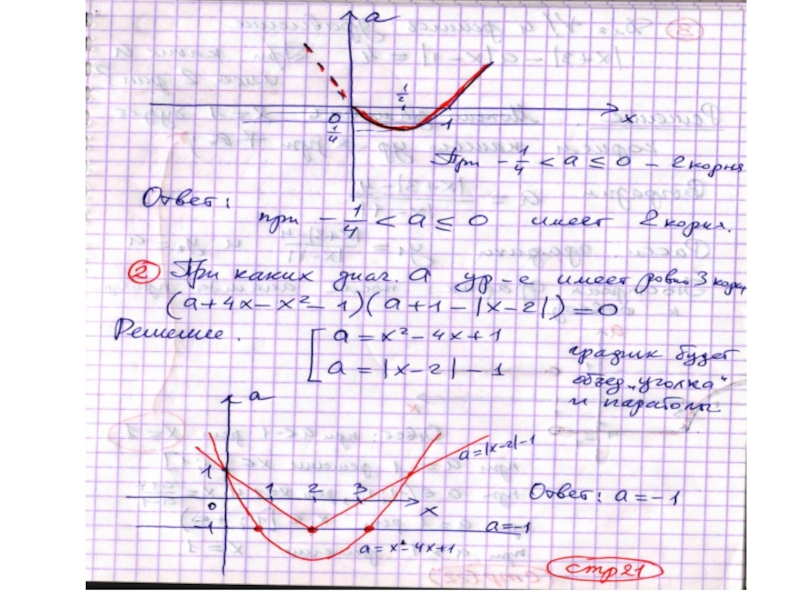 a
1/2
0
1
x
1/4
При - 1/4 < a ≤ 0 - 2 корня
Ответ:
при - 1/4 < a ≤ 0 имеет 2 корня.
② При каких a ур-е имеет ровно 3 корня
(a+4x-x²-1)(a+1-|x-2|)=0
Решение.
a = x²-4x+1
a = |x-2|-1
график будет
объед. "уголка"
и параболы
a
a=|x-2|-1
1
1 2 3
0
x
Ответ: a=-1
-1
a=-1
a=x²-4x+1
стр 21